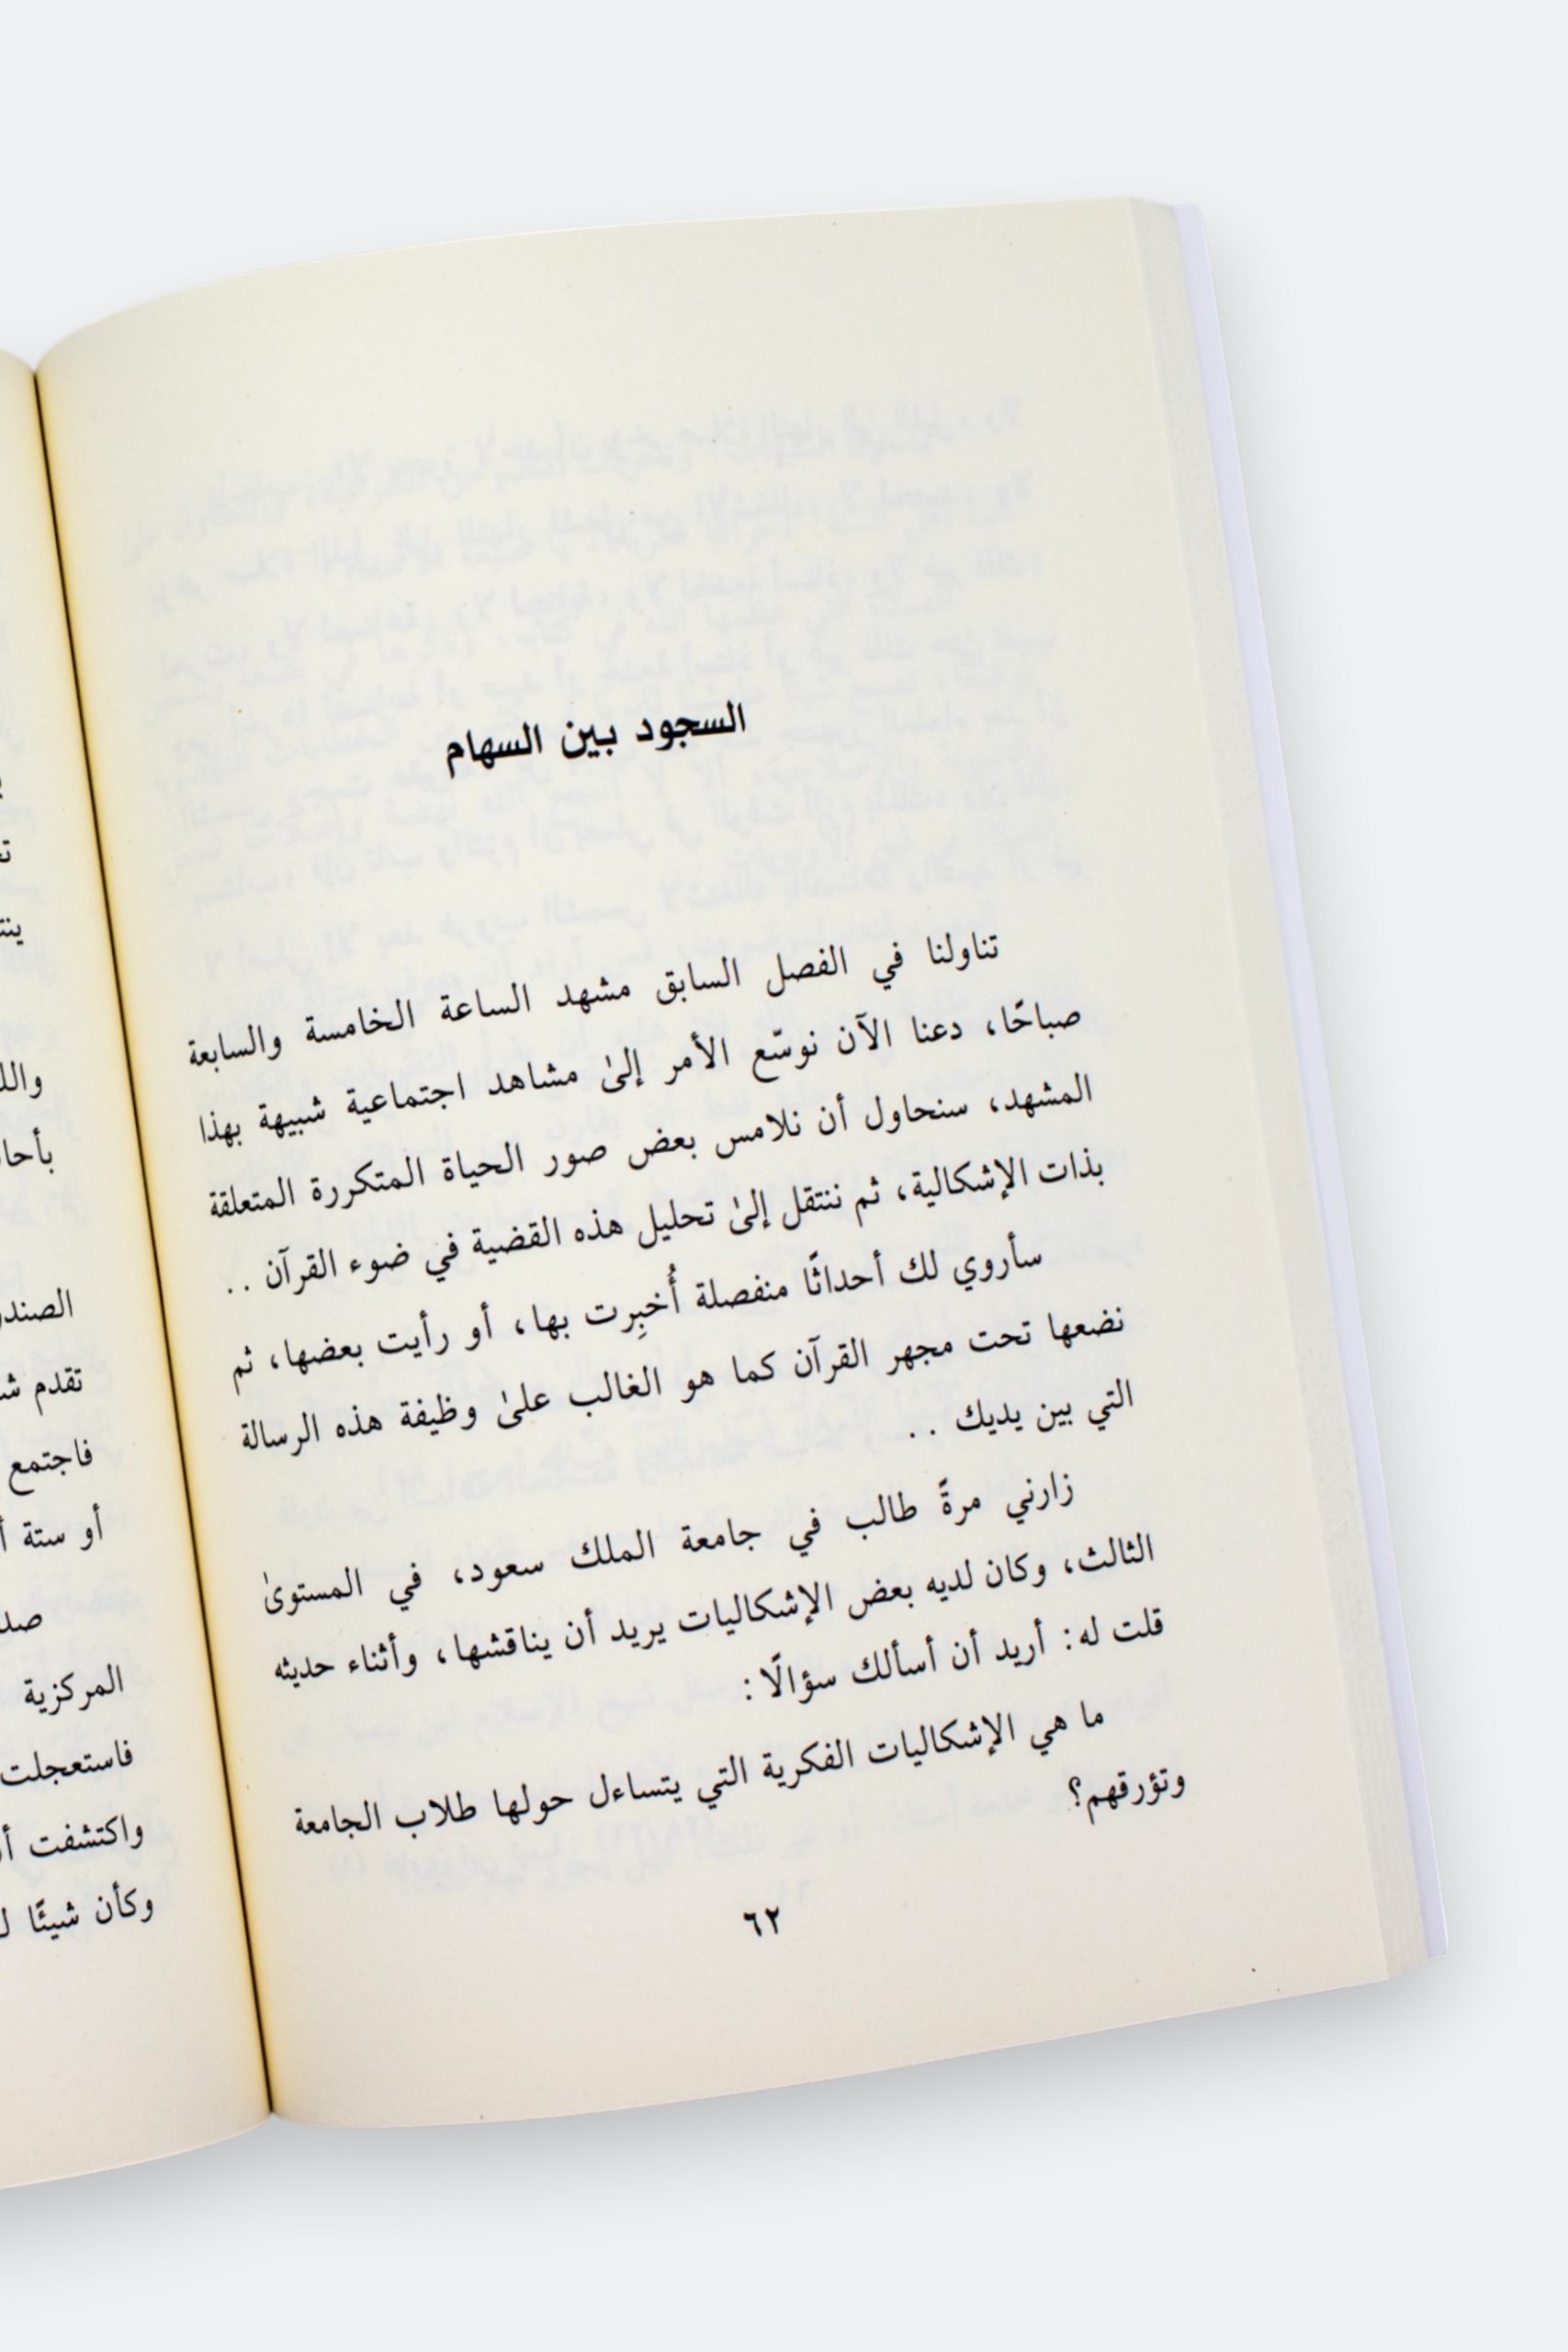 السجود بين السهام
تناولنا في الفصل السابق مشهد الساعة الخامسة والسابعة
صباحًا، دعنا الآن نوسّع الأمر إلىٰ مشاهد اجتماعية شبيهة بهذا
المشهد، سنحاول أن نلامس بعض صور الحياة المتكررة المتعلقة
بذات الإشكالية، ثم ننتقل إلىٰ تحليل هذه القضية في ضوء القرآن ..
سأروي لك أحداثًا منفصلة أُخبِرت بها، أو رأيت بعضها، ثم
نضعها تحت مجهر القرآن كما هو الغالب علىٰ وظيفة هذه الرسالة
التي بين يديك ..
زارني مرةً طالب في جامعة الملك سعود، في المستوىٰ
الثالث، وكان لديه بعض الإشكاليات يريد أن يناقشها، وأثناء حديثه
قلت له: أريد أن أسألك سؤالًا:
ما هي الإشكاليات الفكرية التي يتساءل حولها طلاب الجامعة
وتؤرقهم؟
٦٢
تقدم
فاجتمع
أو ستة
المركزية
فاستعجلت
واكتشفت
وكأن شيئًا